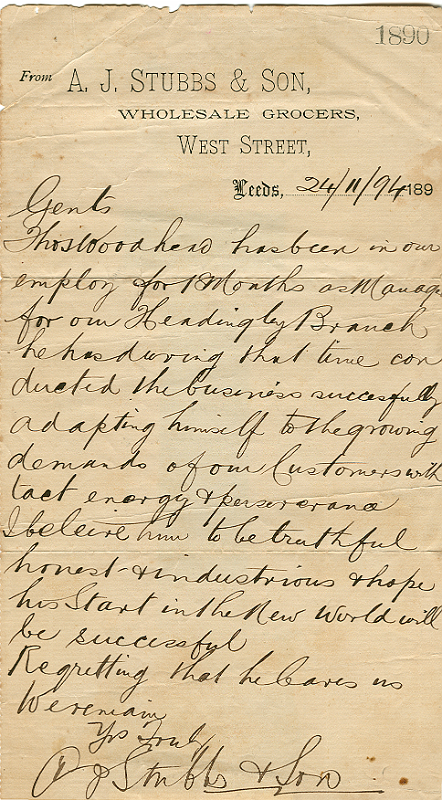 1890
From A. J. STUBBS & SON,
WHOLESALE GROCERS,
WEST STREET,
Leeds, 24/11/94 189
Gents
Thos Woodhead has been in our
employ for 18 Months as Manager
for our Headingley Branch
he has during that time con
ducted the business succesfully
adapting himself to the growing
demands of our Customers with
tact energy & perseverance
I beleive him to be truthful
honest & industrious & hope
his Start in the New World will
be successful
Regretting that he leaves us
We remain
Yrs Truly
A J Stubbs & Son